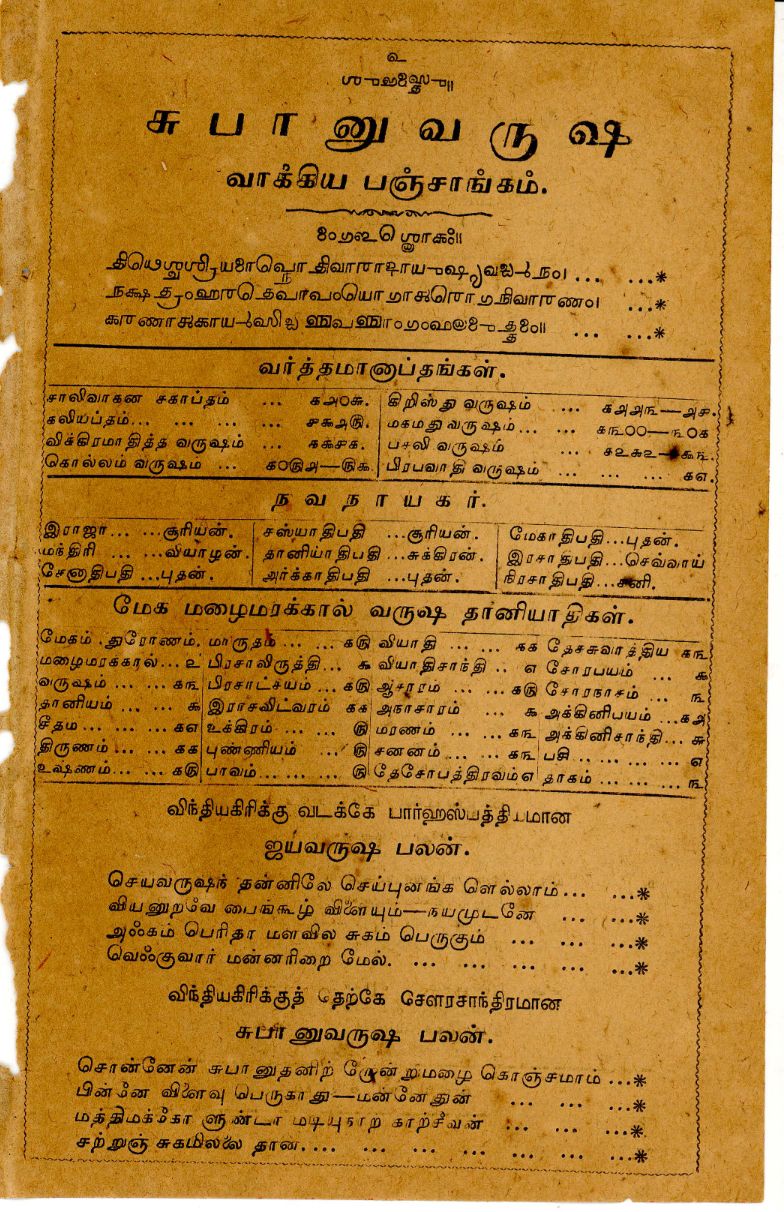 உ
சுபானுவருஷ
வாக்கிய பஞ்சாங்கம்.
வர்த்தமானாப்தங்கள்.
சாலிவாகன சகாப்தம் ... ௧௮௦௫. கிறிஸ்து வருஷம் ... ௧௮௮௩—௮௪.
கலியப்தம்... ... ... ... ௪௯௮௫. மகமது வருஷம்... ... ௧௩௦௦—௩௦௧
விக்கிரமாதித்த வருஷம் ... ௧௯௪௦. பசலி வருஷம் ... ௧௨௯௨—௯௩.
கொல்லம் வருஷம் ... ௧௦௫௮—௫௯. பிரபவாதி வருஷம் ... ... ... ௧௭.
நவநாயகர்.
இராஜா... ...சூரியன். சஸ்யாதிபதி ...சூரியன். மேகாதிபதி...புதன்.
மந்திரி ... ...வியாழன். தானியாதிபதி...சுக்கிரன். இரசாதிபதி...செவ்வாய்
சேனாதிபதி ...புதன். அர்க்காதிபதி ...புதன். நிரசாதிபதி...சனி.
மேக மழைமரக்கால் வருஷ தானியாதிகள்.
மேகம். துரோணம். மாருதம் ... ... ௧௫ வியாதி ... ... ௧௧ தேசசுவாத்திய ௧௩
மழைமரக்கால்... ௨ பிரசாவிருத்தி... ௯ வியாதிசாந்தி .. ௭ சோரபயம் ... ௯
வருஷம் ... ... ௧௩ பிரசாட்சயம் ... ௧௫ ஆசாரம் ... ... ௧௫ சோரநாசம் ... ௩
தானியம் ... ... ௯ இராசவிட்வரம் ௧௧ அநாசாரம் ... ௯ அக்கினிபயம் ...௧௮
சீதம ... ... ...௧௭ உக்கிரம் ... ... ௫ மரணம் ... ... ௧௩ அக்கினிசாந்தி...
திருணம் ... ... ௧௧ புண்ணியம் ... ௫ சனனம் ... ... ௧௩ பசி ... ... ... ... ௭
உஷ்ணம்... ... ௧௫ பாவம்... ... ... ௫ தேசோபத்திரவம்௭ தாகம் ... ... ... ௩
விந்தியகிரிக்கு வடக்கே பார்ஹஸ்பத்தியமான
ஜயவருஷ பலன்.
செயவருஷந் தன்னிலே செய்புனங்க ளெல்லாம்... ...*
வியனுறவே பைங்கூழ் விளையும்—நயமுடனே ... ...*
அஃகம் பெரிதா மளவில சுகம் பெருகும் ... ... ...*
வெஃகுவார் மன்னரிறை மேல். ... ... ... ... ...*
விந்தியகிரிக்குத் தெற்கே சௌரசாந்திரமான
சுபானுவருஷ பலன்.
சொன்னேன் சுபானுதனிற் மழை கொஞ்சமாம் ...*
பின்னே விளைவு பெருகாது—மன்னே ... ... ...*
காற்சீவன் ... ... ...*
சற்றுஞ் சுகமில்லை தான். ... ... ... ... ... ...*